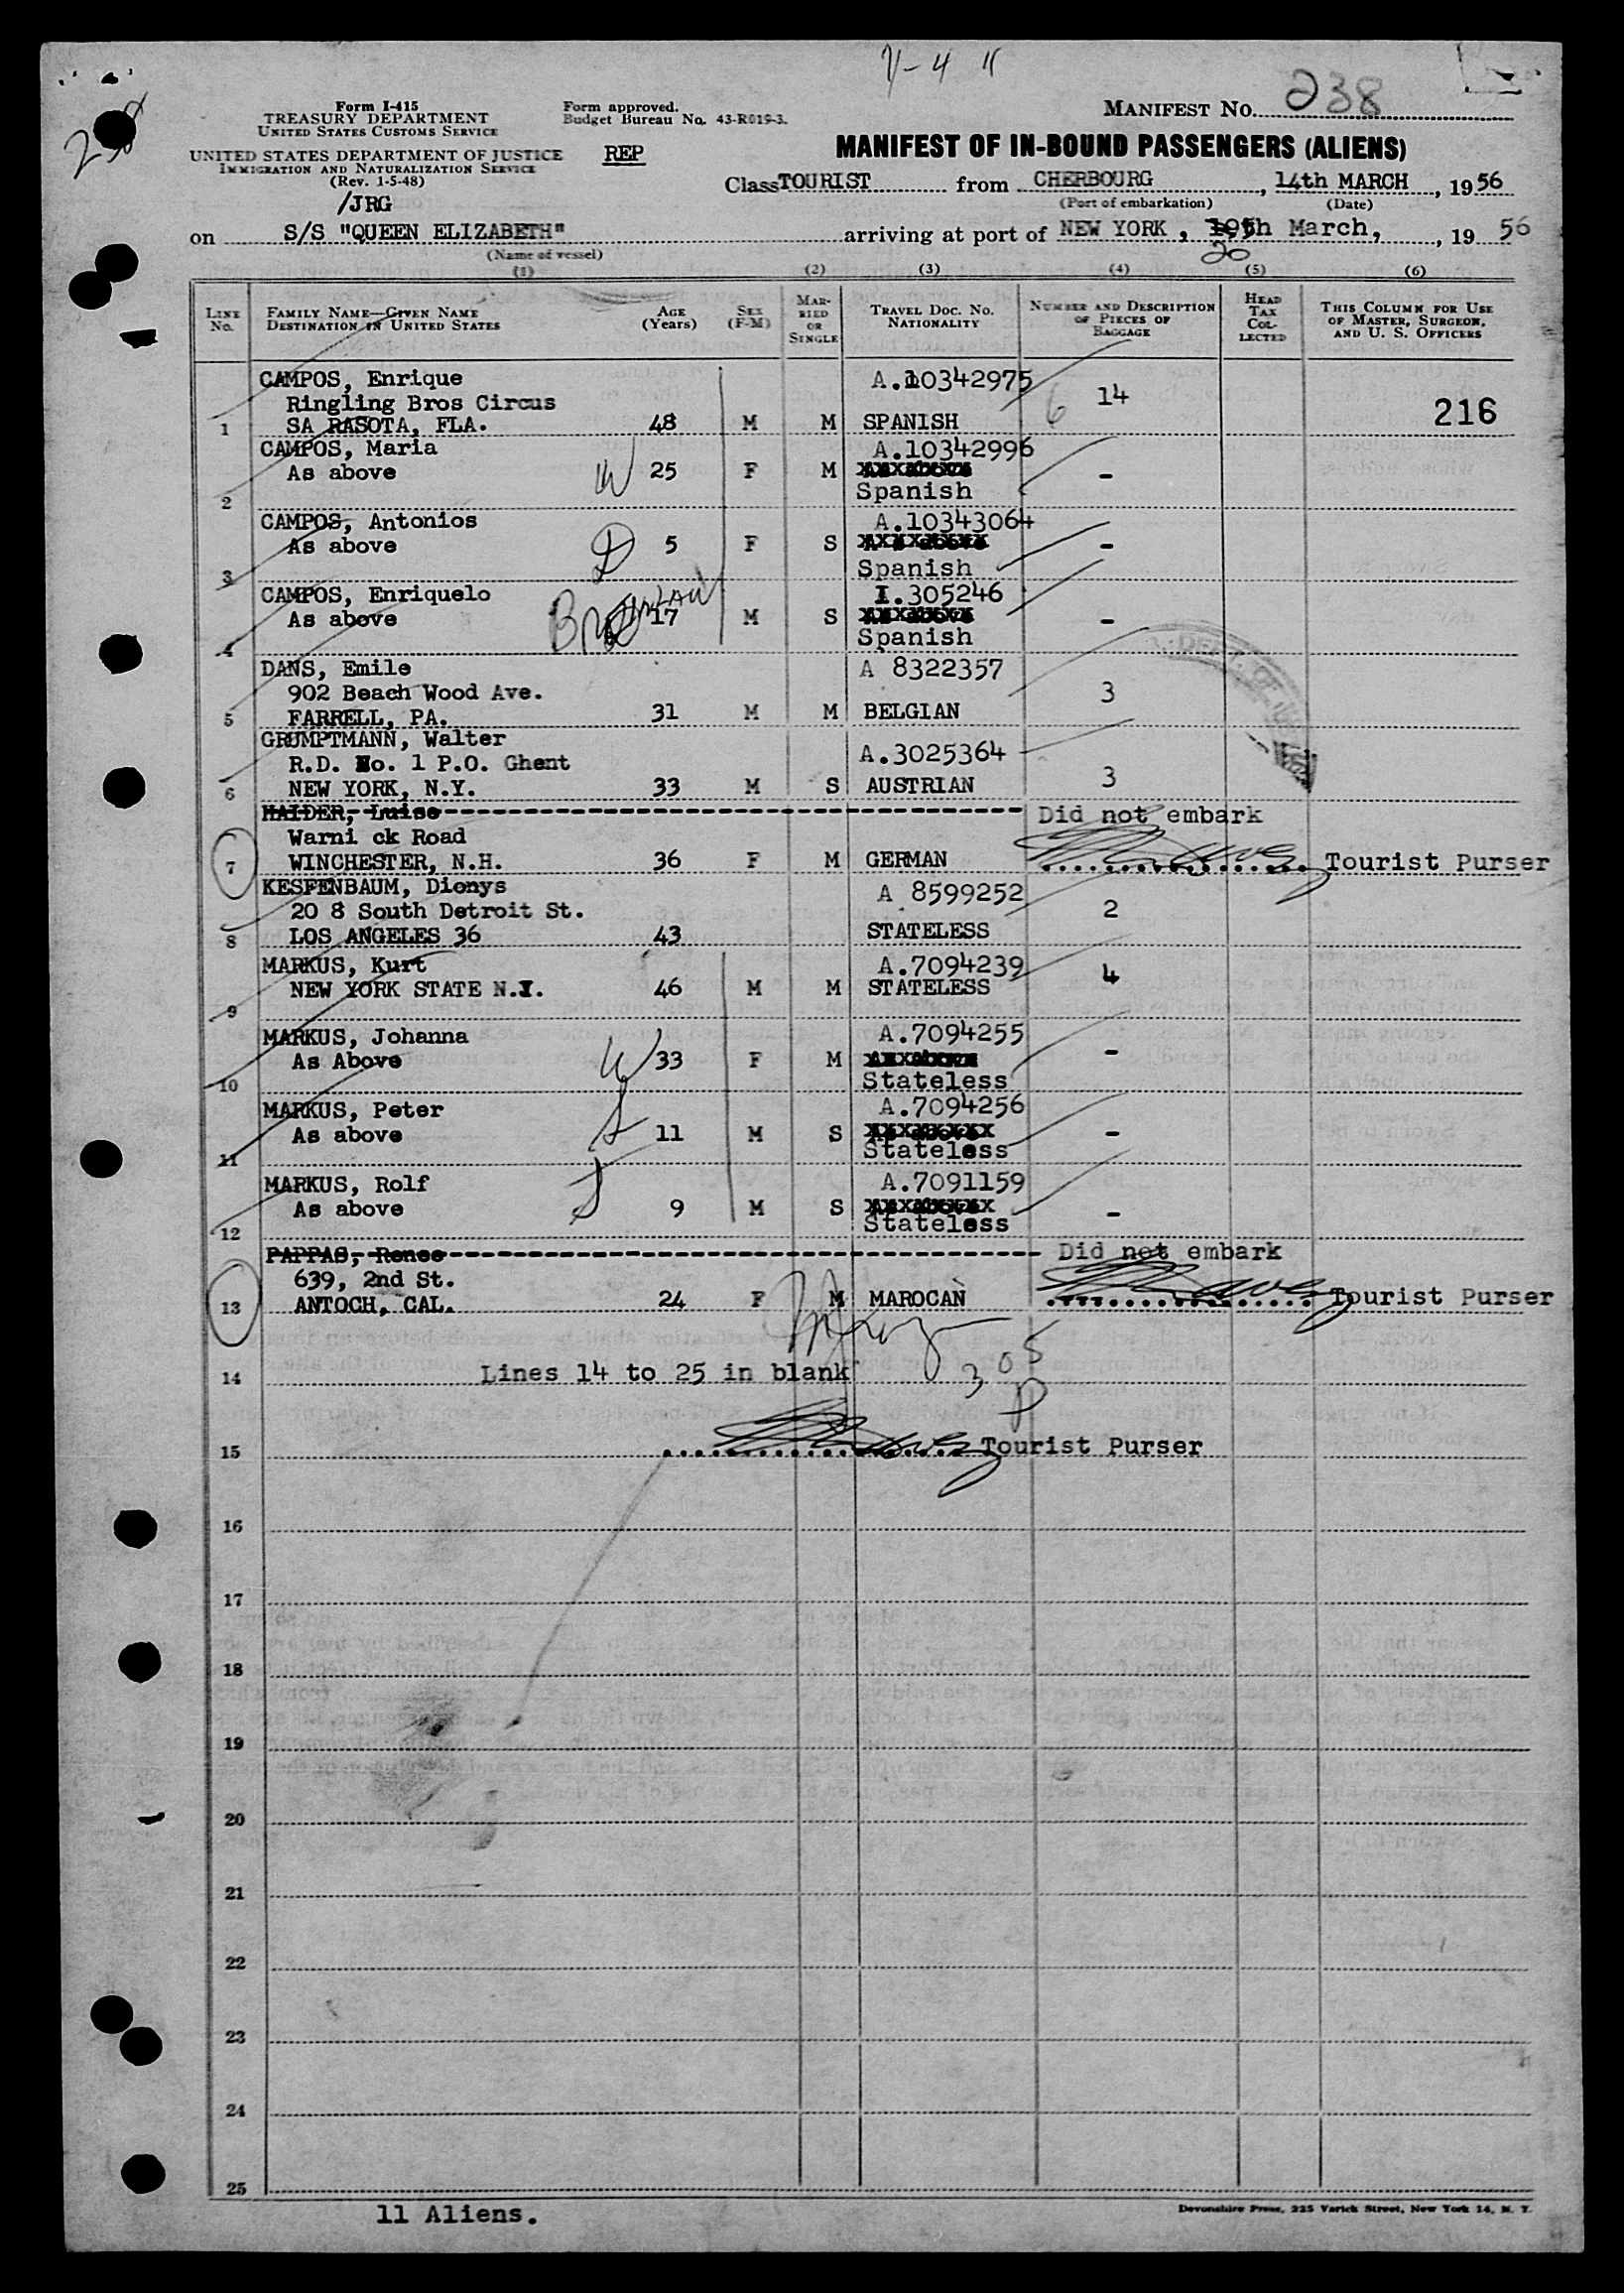 V-4 11
238
Form I-415
TREASURY DEPARTMENT
UNITED STATES CUSTOMS SERVICE
UNITED STATES DEPARTMENT OF JUSTICE
IMMIGRATION AND NATURALIZATION SERVICE
(Rev. 1-5-48)
/JRG
Form approved.
Budget Bureau No. 43-R019-3.
REP
MANIFEST No. 238
MANIFEST OF IN-BOUND PASSENGERS (ALIENS)
Class TOURIST from CHERBOURG, 14th MARCH, 1956
(Port of embarkation) (Date)
on S/S "QUEEN ELIZABETH" arriving at port of NEW YORK, th March, 1956
20
(Name of vessel)
(1) (2) (3) (4) (5) (6)
LINE No. FAMILY NAME—GIVEN NAME DESTINATION IN UNITED STATES AGE (Years) SEX (F-M) MARRIED OR SINGLE TRAVEL DOC. No. NATIONALITY NUMBER AND DESCRIPTION OF PIECES OF BAGGAGE HEAD TAX COLLECTED THIS COLUMN FOR USE OF MASTER, SURGEON, AND U. S. OFFICERS
CAMPOS, Enrique A.10342975
Ringling Bros Circus 6 14 216
1 SA RASOTA, FLA. 48 M M SPANISH
CAMPOS, Maria A.10342996
As above W 25 F M -
2 Spanish
CAMPOS, Antonios A.10343064
As above D 5 F S -
3 Spanish
CAMPOS, Enriquelo I.305246
As above 17 M S -
4 Spanish
DANS, Emile A 8322357
902 Beach Wood Ave. 3
5 FARRELL, PA. 31 M M BELGIAN
GRUMPTMANN, Walter A.3025364
R.D. No. 1 P.O. Ghent 3
6 NEW YORK, N.Y. 33 M S AUSTRIAN
HAIDER, Luise Did not embark
Warni ck Road
7 WINCHESTER, N.H. 36 F M GERMAN Tourist Purser
KESFENBAUM, Dionys A 8599252
20 8 South Detroit St. 2
8 LOS ANGELES 36 43 STATELESS
MARKUS, Kurt A.7094239 4
NEW YORK STATE N.Y. 46 M M STATELESS
9
MARKUS, Johanna A.7094255
As Above W 33 F M -
10 Stateless
MARKUS, Peter A.7094256
As above S 11 M S -
11 Stateless
MARKUS, Rolf A.7091159
As above S 9 M S -
12 Stateless
PAPPAS, Renee Did not embark
639, 2nd St.
13 ANTOCH, CAL. 24 F M MAROCAN Tourist Purser
305
14 Lines 14 to 25 in blank
15 Tourist Purser
16
17
18
19
20
21
22
23
24
25
11 Aliens.
Devonshire Press, 225 Varick Street, New York 14, N. Y.